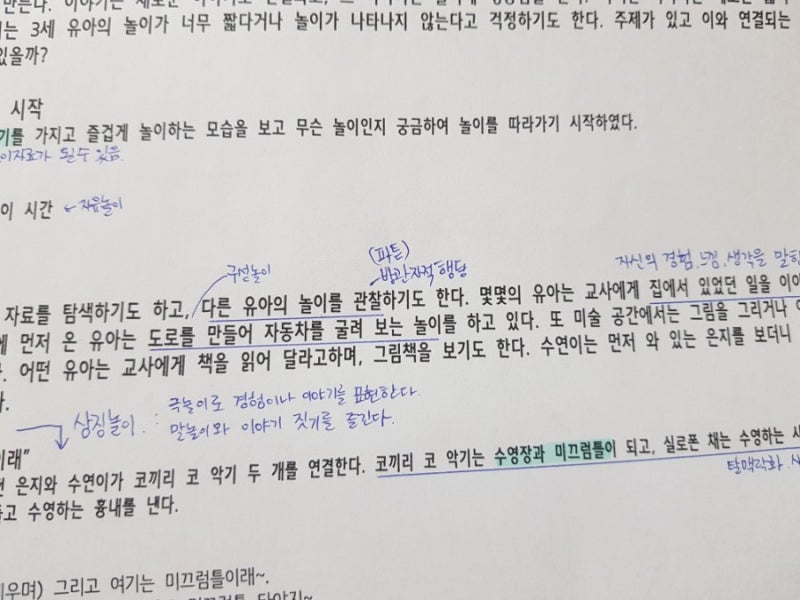 는 3세 유아의 놀이가 너무 짧다거나 놀이가 나타나지 않는다고 걱정하기도 한다. 주제가 있고 이와 연결되는
있을까?
시작
기를 가지고 즐겁게 놀이하는 모습을 보고 무슨 놀이인지 궁금하여 놀이를 따라가기 시작하였다.
이자료가 될 수 있음.
이 시간 ← 자유놀이
(파튼)
구성놀이
방관자적 행동
자신의 경험, 느낌, 생각을 말하
자료를 탐색하기도 하고, 다른 유아의 놀이를 관찰하기도 한다. 몇몇의 유아는 교사에게 집에서 있었던 일을 이야
에 먼저 온 유아는 도로를 만들어 자동차를 굴려 보는 놀이를 하고 있다. 또 미술 공간에서는 그림을 그리거나
어떤 유아는 교사에게 책을 읽어 달라고하며, 그림책을 보기도 한다. 수연이는 먼저 와 있는 은지를 보더니
다.
상징놀이. : 극놀이로 경험이나 이야기를 표현한다.
말놀이와 이야기 짓기를 즐긴다.
이래”
은지와 수연이가 코끼리 코 악기 두 개를 연결한다. 코끼리 코 악기는 수영장과 미끄럼틀이 되고, 실로폰 채는 수영하는 사
탈맥락화.
고 수영하는 흉내를 낸다.
우며) 그리고 여기는 미끄럼틀이래~.